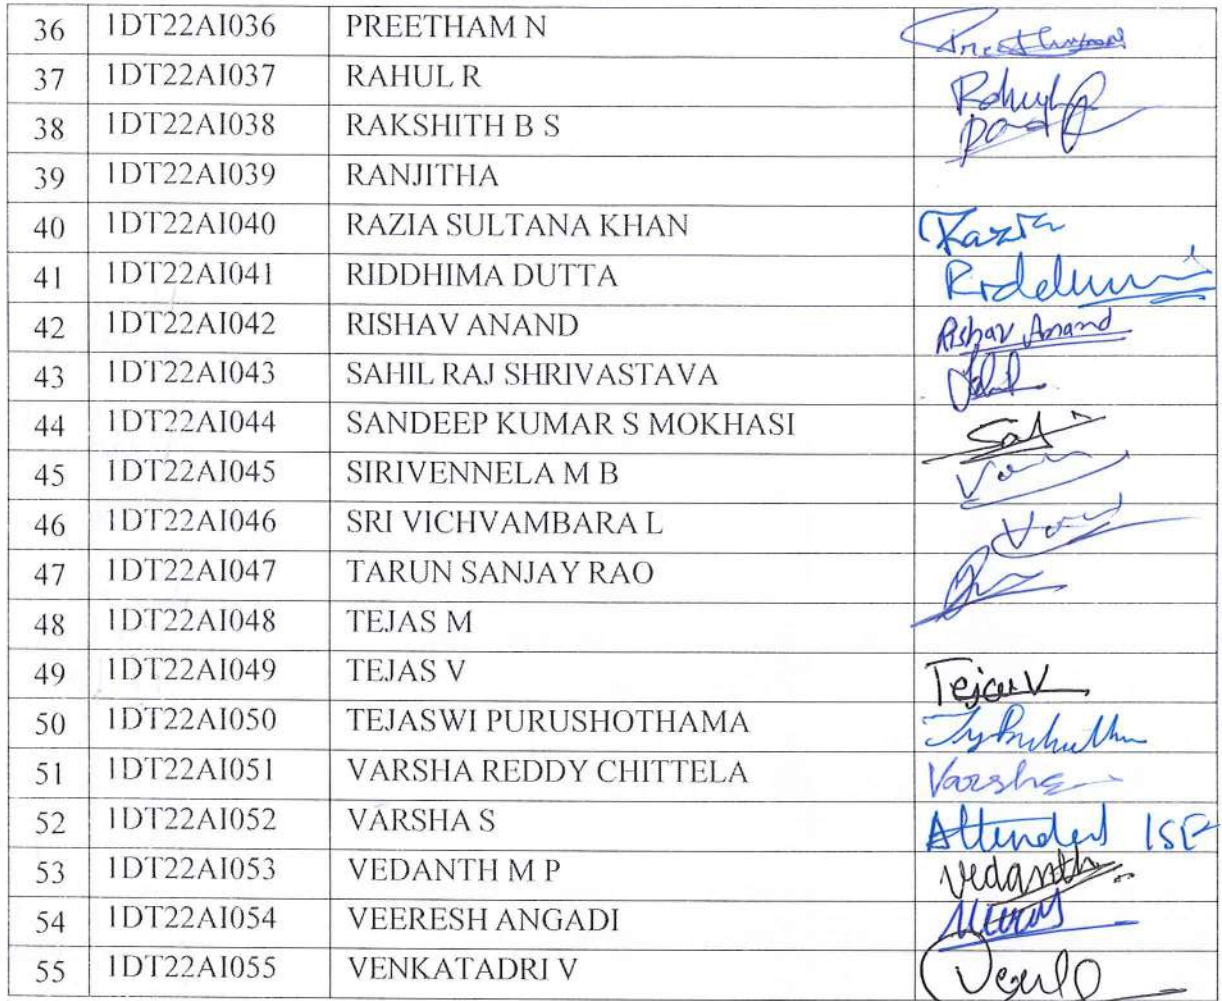 36 1DT22AI036 PREETHAM N
37 1DT22AI037 RAHUL R Rahul
38 1DT22AI038 RAKSHITH B S
39 1DT22AI039 RANJITHA
40 1DT22AI040 RAZIA SULTANA KHAN Razia
41 1DT22AI041 RIDDHIMA DUTTA
42 1DT22AI042 RISHAV ANAND Rishav Anand
43 1DT22AI043 SAHIL RAJ SHRIVASTAVA
44 1DT22AI044 SANDEEP KUMAR S MOKHASI
45 1DT22AI045 SIRIVENNELA M B
46 1DT22AI046 SRI VICHVAMBARA L
47 1DT22AI047 TARUN SANJAY RAO
48 1DT22AI048 TEJAS M
49 1DT22AI049 TEJAS V Tejas V
50 1DT22AI050 TEJASWI PURUSHOTHAMA
51 1DT22AI051 VARSHA REDDY CHITTELA Varsha
52 1DT22AI052 VARSHA S Attended ISE
53 1DT22AI053 VEDANTH M P Vedanth
54 1DT22AI054 VEERESH ANGADI
55 1DT22AI055 VENKATADRI V